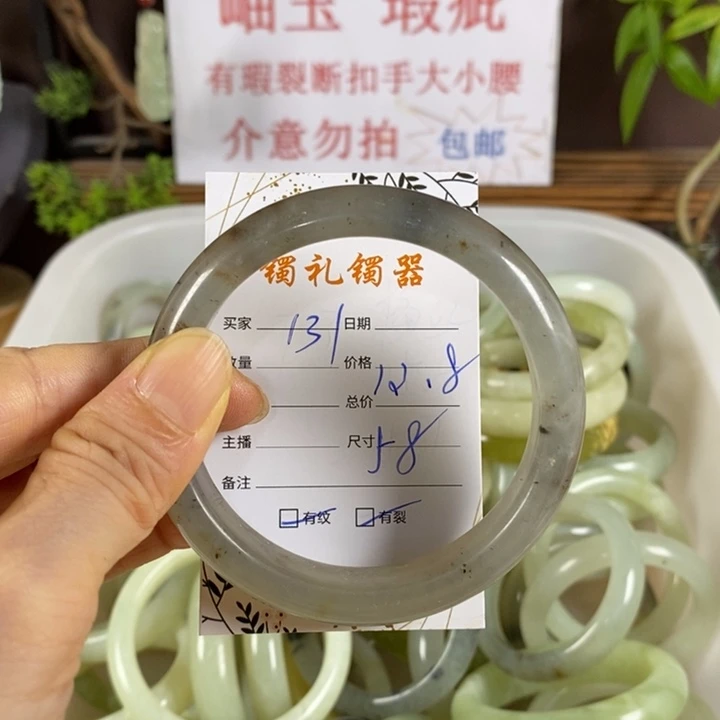 岫玉 瑕疵
有瑕裂断扣手大小腰
介意勿拍 包邮
镯礼镯器
买家 131 日期
数量 价格 12.8
总价
主播 尺寸 58
备注
有纹 有裂